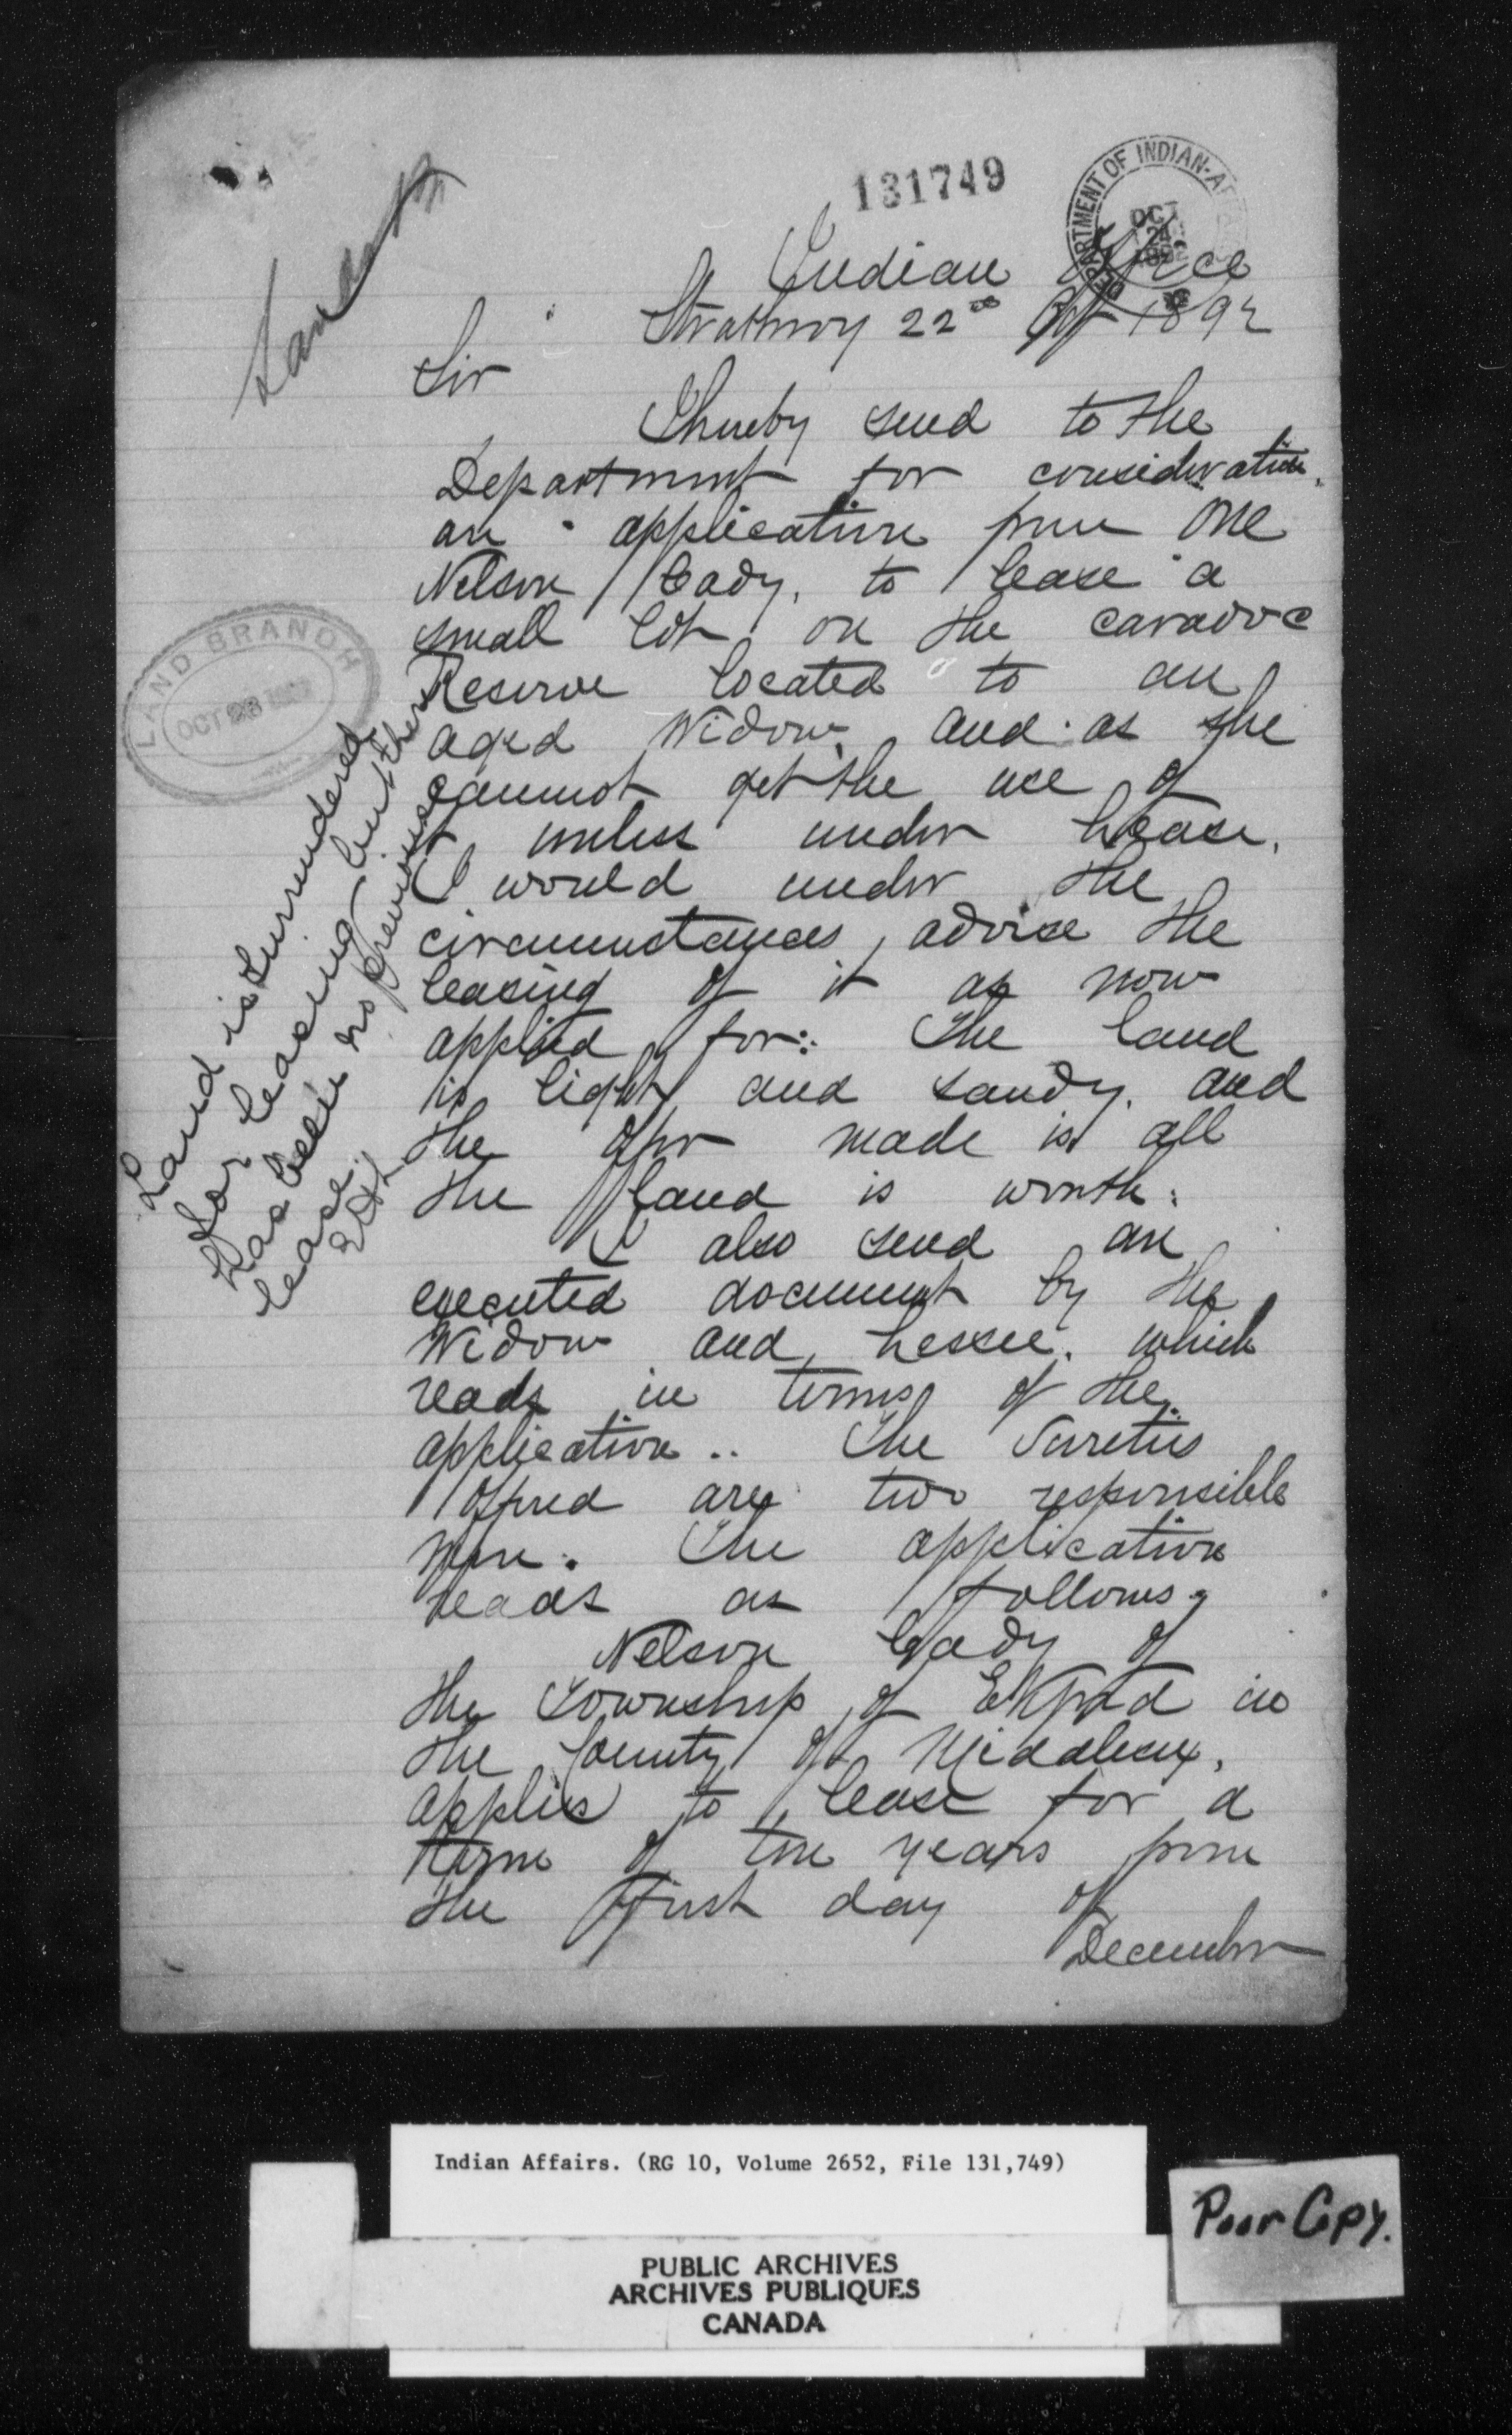 131749
DEPARTMENT OF INDIAN-AF
OCT
24
1892
Indian Office
Strathroy 22nd Oct 1892
Sir
I hereby send to the
Department for consideration,
an application from one
Nelson Cady, to lease a
small lot on the caradoc
Reserve located to an
aged Widow, and as she
cannot get the use of
it unless under Lease,
I would under the
circumstances, advise the
leasing of it as now
applied for: The land
is light and sandy, and
the offer made is all
the land is worth:
I also send an
executed document by the
Widow and Lessee, which
reads in terms of the
application.. The Sureties
offered are two responsible
men. The application
reads as follows;
Nelson Cady of
the Township of Ekfrid in
the County of Middlesex,
applies to lease for a
term of ten years from
the first day of
December
LAND BRANCH
OCT 28
Land is surrendered
for leasing but there
has been no previous
lease.
Indian Affairs. (RG 10, Volume 2652, File 131,749)
PUBLIC ARCHIVES
ARCHIVES PUBLIQUES
CANADA
Poor Copy.